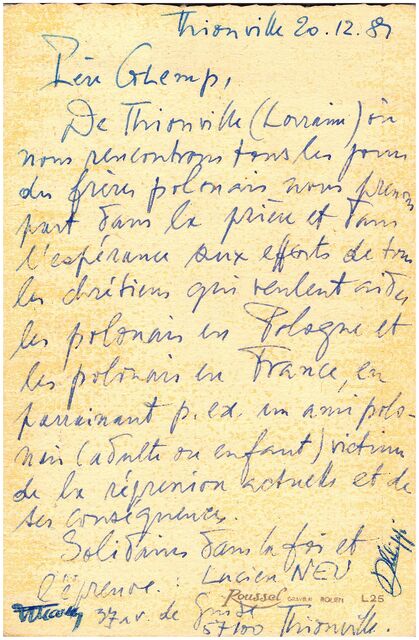 Thionville 20.12.81
Père Glemp,
De Thionville (Lorraine) où
nous rencontrons tous les jours
des frères polonais nous prenons
part dans la prière et dans
l'espérance aux efforts de tous
les chrétiens qui veulent aider
les polonais en Pologne et
les polonais en France, en
parrainant p. ex. un ami polo-
nais (adulte ou enfant) victime
de la répression actuelle et de
ses conséquences.
Solidaires dans la foi et
l'épreuve : Lucien NEU
Roussel L25
37 av. de Guise
57100 Thionville.